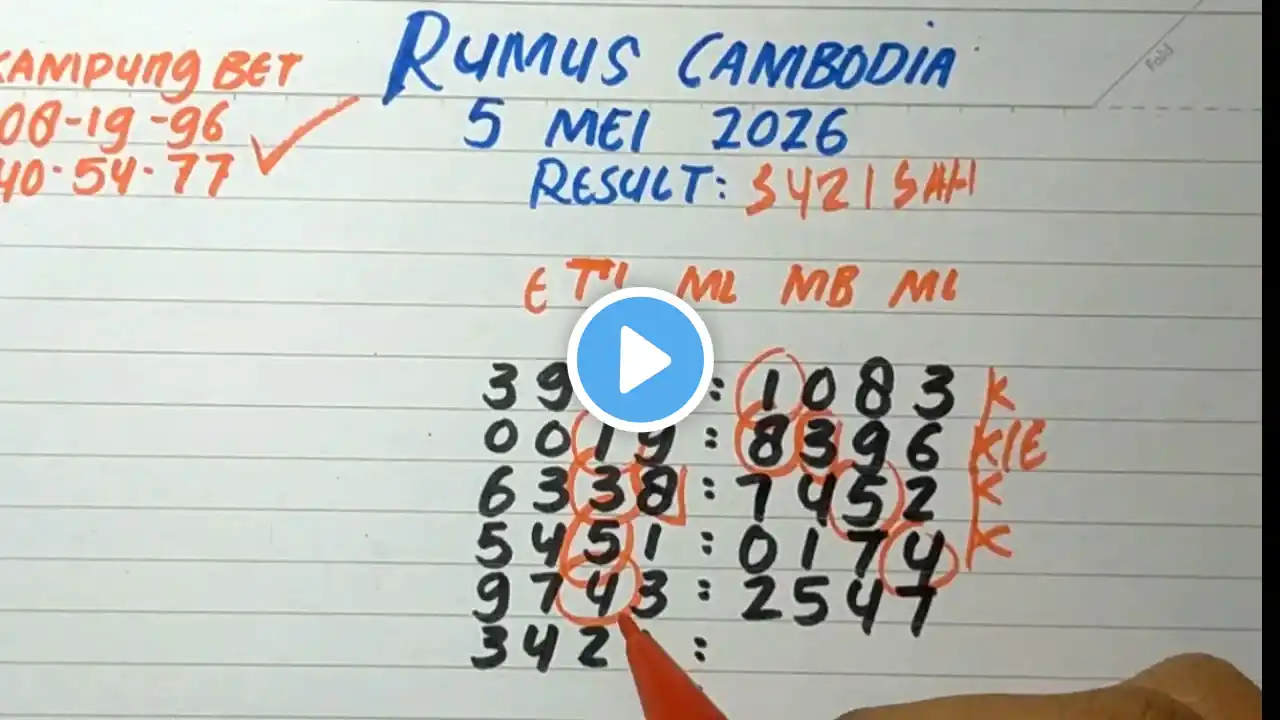 KAMPUNG BET
08-19-96
40-54-77
RUMUS CAMBODIA
5 MEI 2026
RESULT: 3421 SAH
ML MB ML
39 : 1083 K
0019 : 8396 K/E
6338 : 7452 K
5451 : 0174 K
9743 : 2547
342 :
Fold